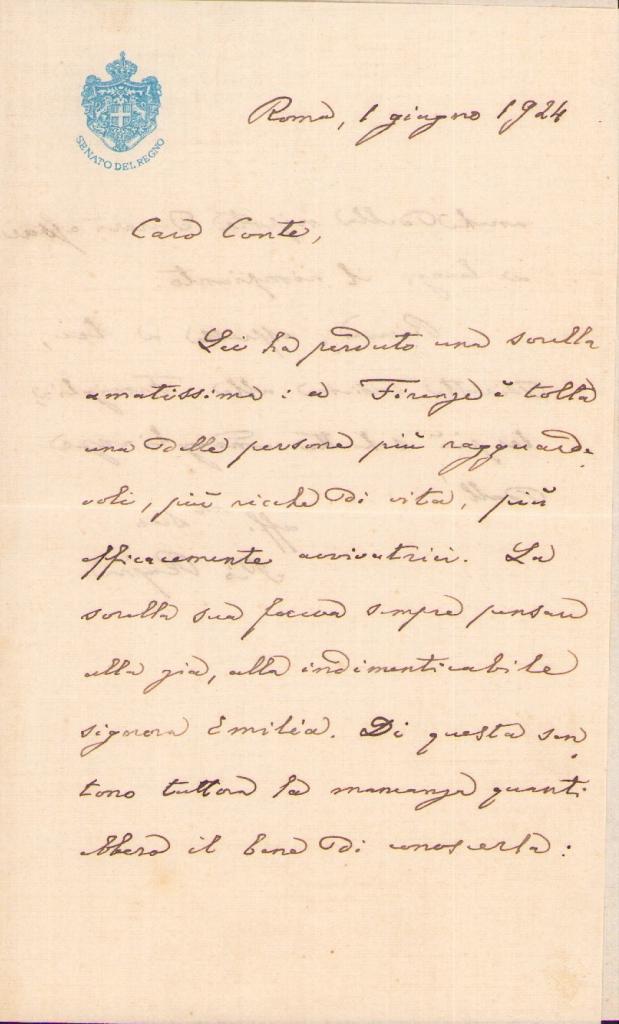 SENATO DEL REGNO
Roma, 1 giugno 1924
Caro Conte,
Lei ha perduto una sorella
amatissima: a Firenze è tolta
una delle persone più ragguarde-
voli, più ricche di vita, più
efficacemente avvivatrici. La
sorella sua faceva sempre pensare
alla zia, alla indimenticabile
signora Emilia. Di questa sen-
tono tuttora la mancanza quanti
ebbero il bene di conoscerla: